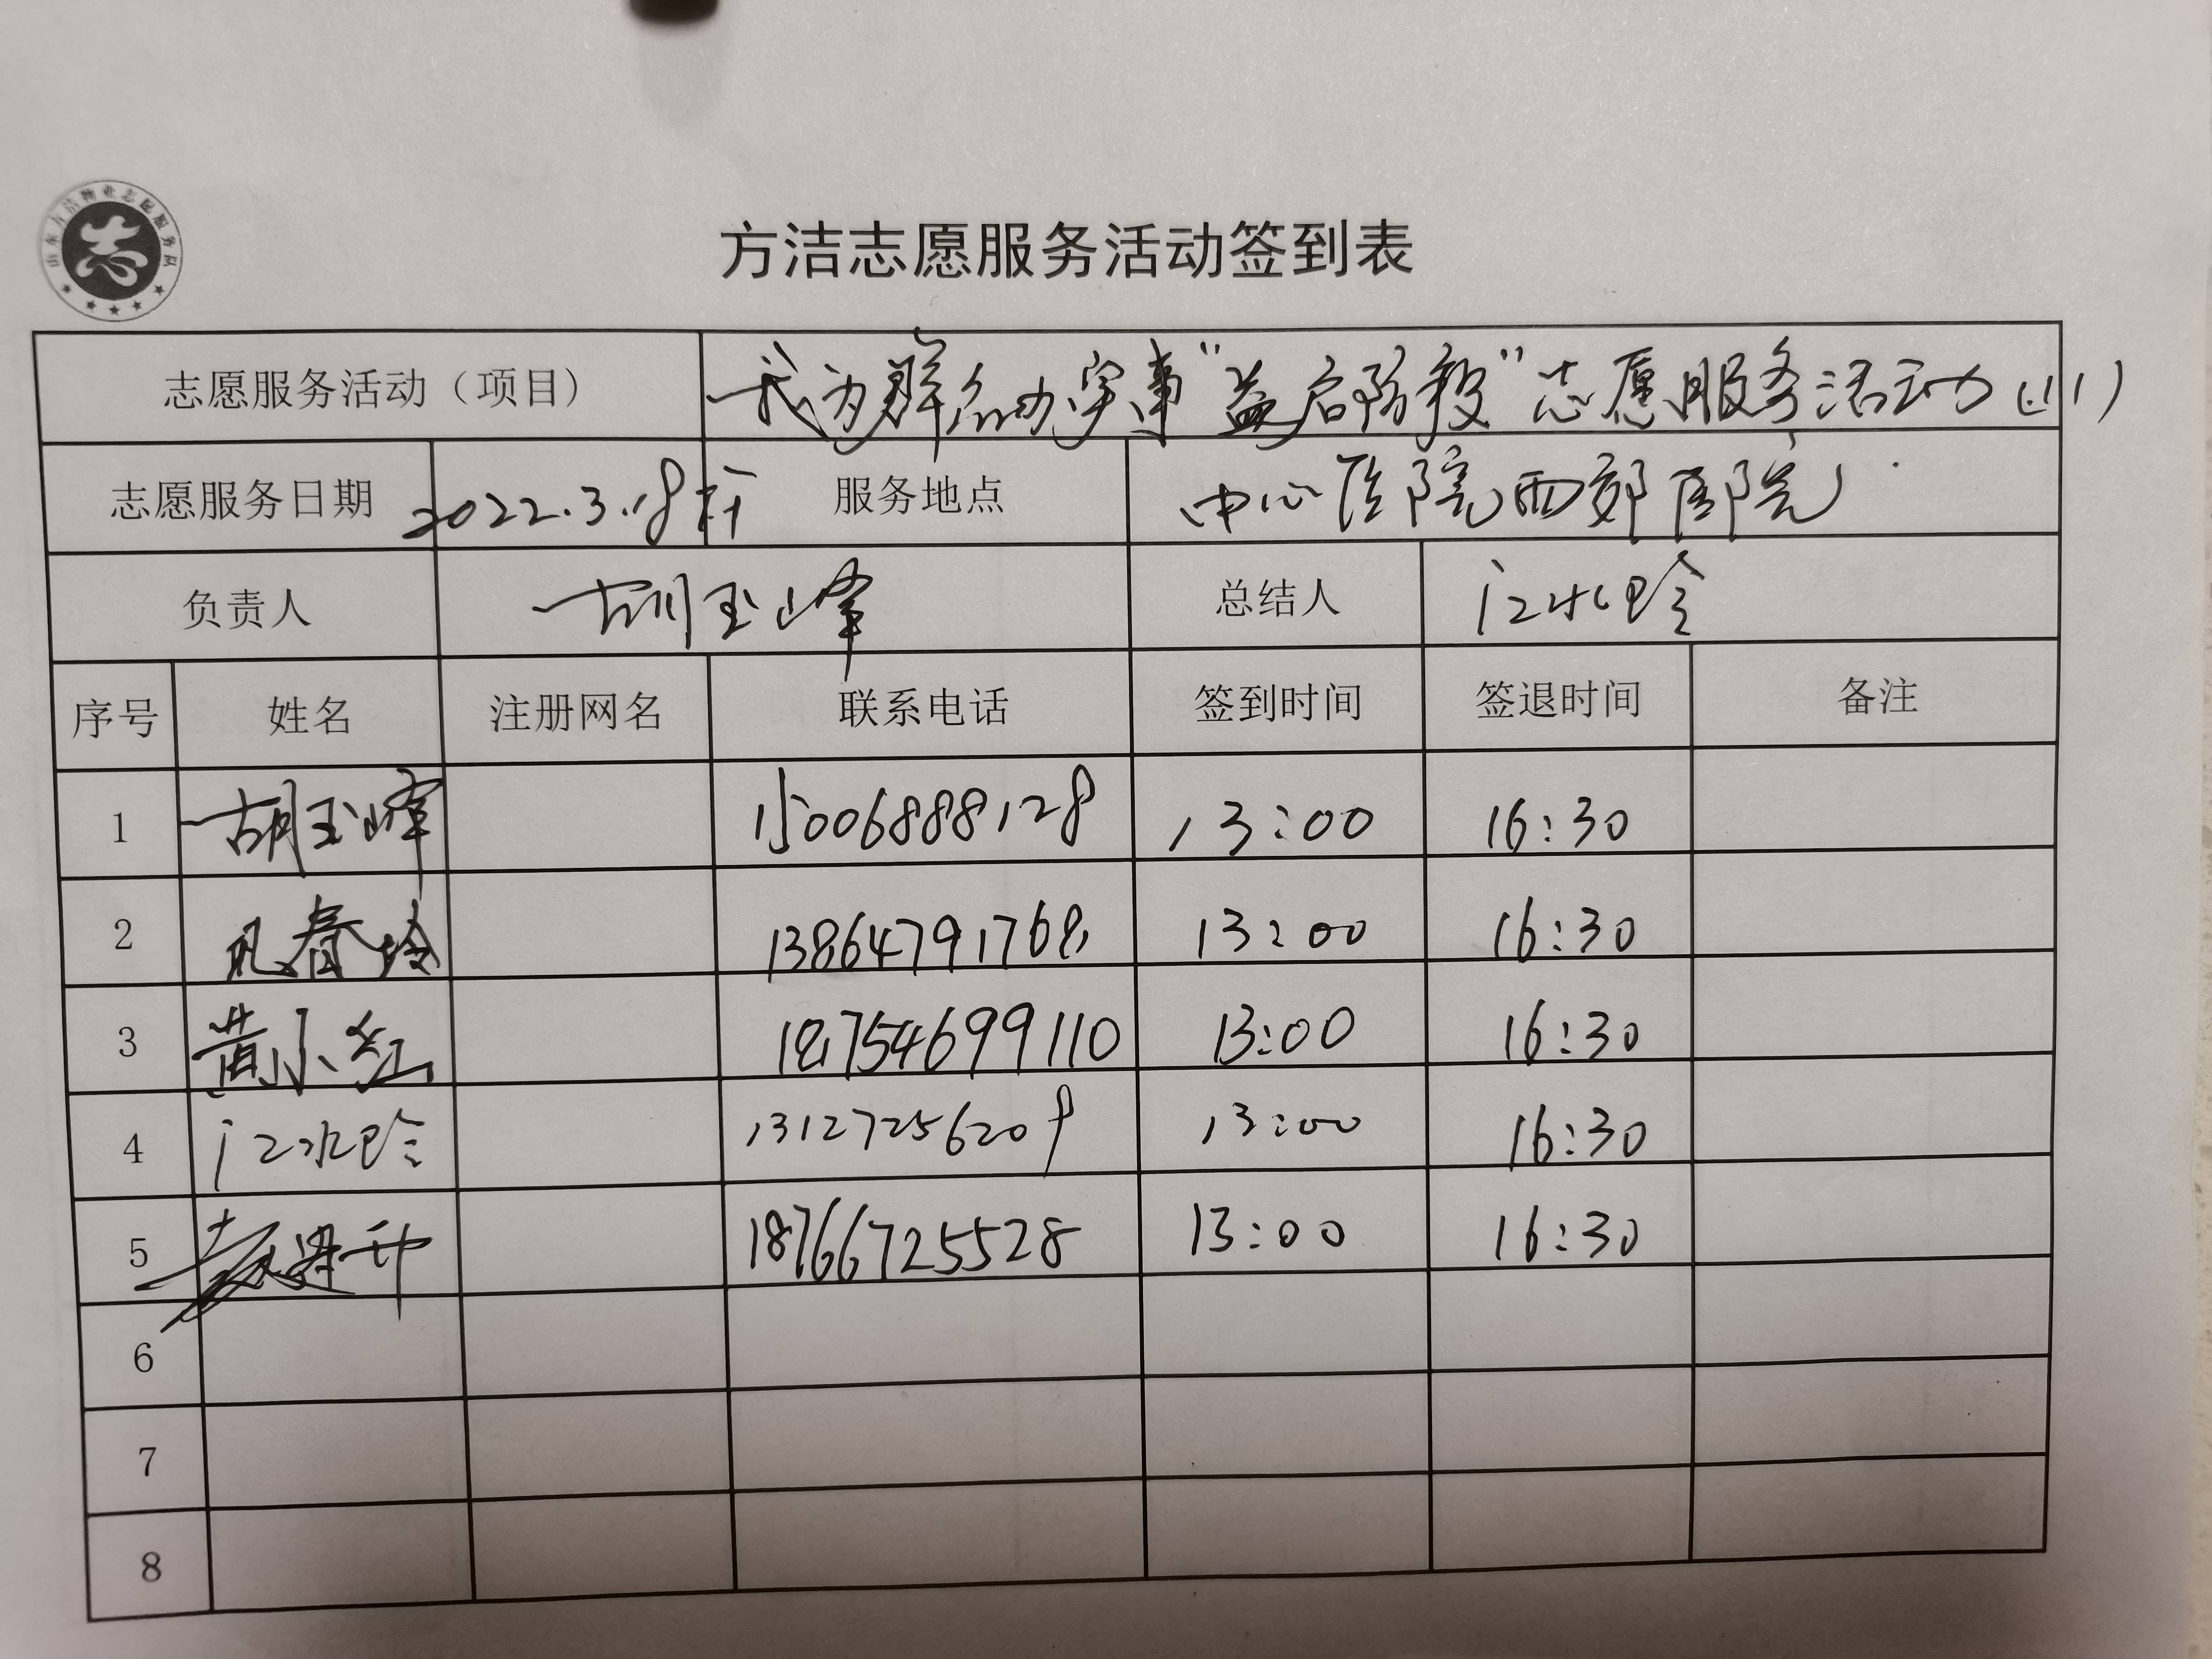 山东方洁物业志愿服务队
志
方洁志愿服务活动签到表
志愿服务活动（项目） 我为群众办实事“益启防疫”志愿服务活动（11）
志愿服务日期 2022.3.18 下午 服务地点 中心医院西郊医院
负责人 胡玉峰 总结人 江水玲
序号 姓名 注册网名 联系电话 签到时间 签退时间 备注
1 胡玉峰 15006888128 13:00 16:30
2 巩春玲 13864791768 13:00 16:30
3 黄小红 18754699110 13:00 16:30
4 江水玲 13127256209 13:00 16:30
5 18766725528 13:00 16:30
6
7
8